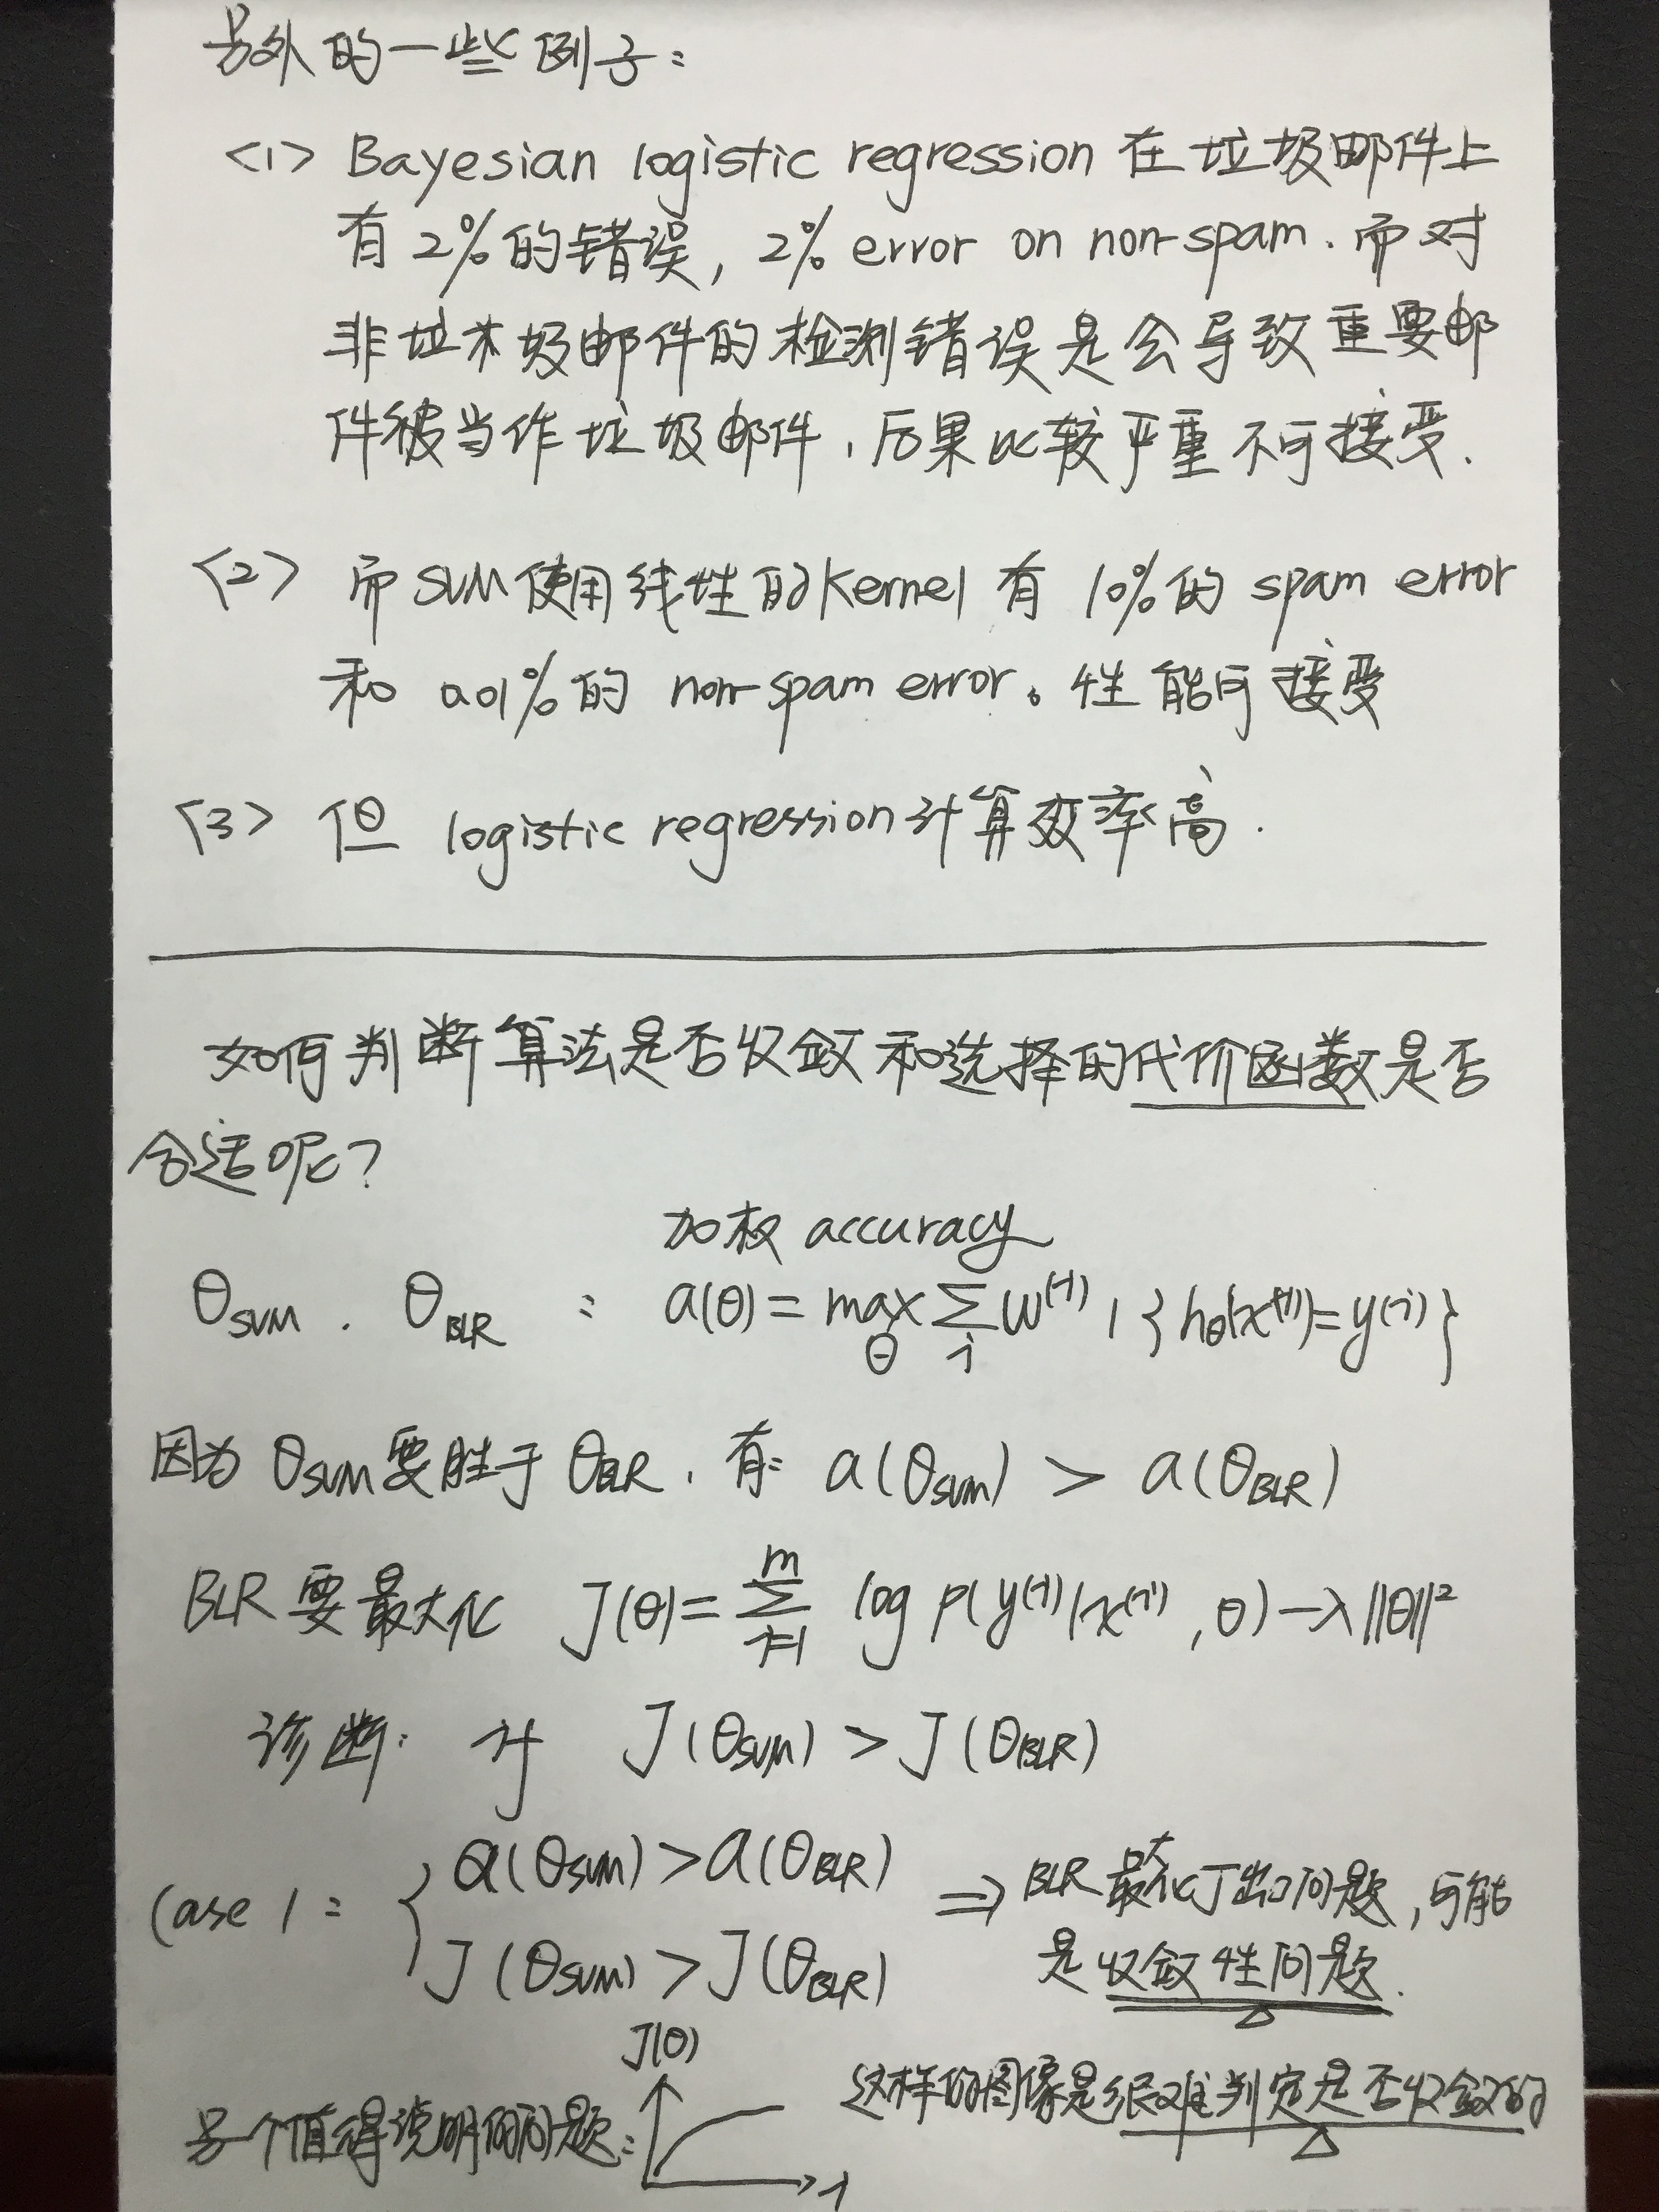 另外的一些例子:
<1> Bayesian logistic regression 在垃圾邮件上
有2%的错误, 2% error on non-spam. 而对
非垃圾邮件的检测错误是会导致重要邮
件被当作垃圾邮件,后果比较严重不可接受.
<2> 而SVM使用线性的Kernel 有 10%的 spam error
和 0.01%的 non-spam error。性能可接受
<3> 但 logistic regression计算效率高.
如何判断算法是否收敛和选择的代价函数是否
合适呢?
加权 accuracy
θSVM . θBLR : a(θ) = max_θ Σ_i w^(i) 1{hθ(x^(i)) = y^(i)}
因为 θSVM要胜于 θBLR. 有: a(θSVM) > a(θBLR)
BLR 要最大化 J(θ) = Σ_{i=1}^m log p(y^(i)|x^(i), θ) - λ||θ||²
诊断: if J(θSVM) > J(θBLR)
Case 1: { a(θSVM) > a(θBLR)
J(θSVM) > J(θBLR)
⇒ BLR 最大化J出了问题,可能
是收敛性问题.
J(θ)
另个值得说明的问题:
i
这样的图像是很难判定是否收敛的